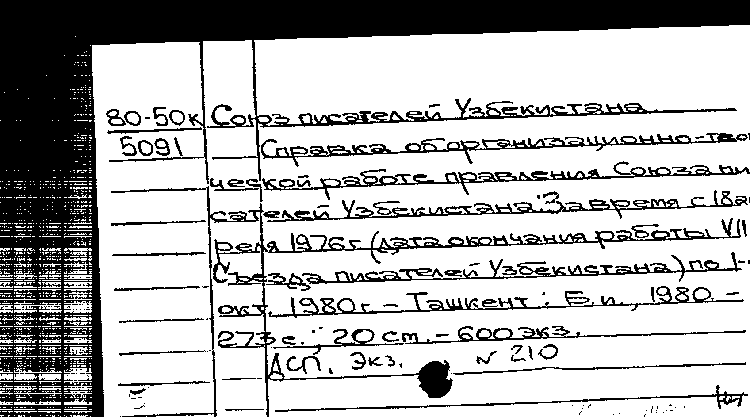 80-50к Союз писателей Узбекистана
5091 Справка об организационно-твор
ческой работе правления Союза пи
сателей Узбекистана: За время с 18 ап
реля 1976г (дата окончания работы VII
Съезда писателей Узбекистана) по 1-
окт. 1980г. - Ташкент: Б.и., 1980 -
273 с.; 20 см. - 600 экз.
ДСП. Экз. N 210